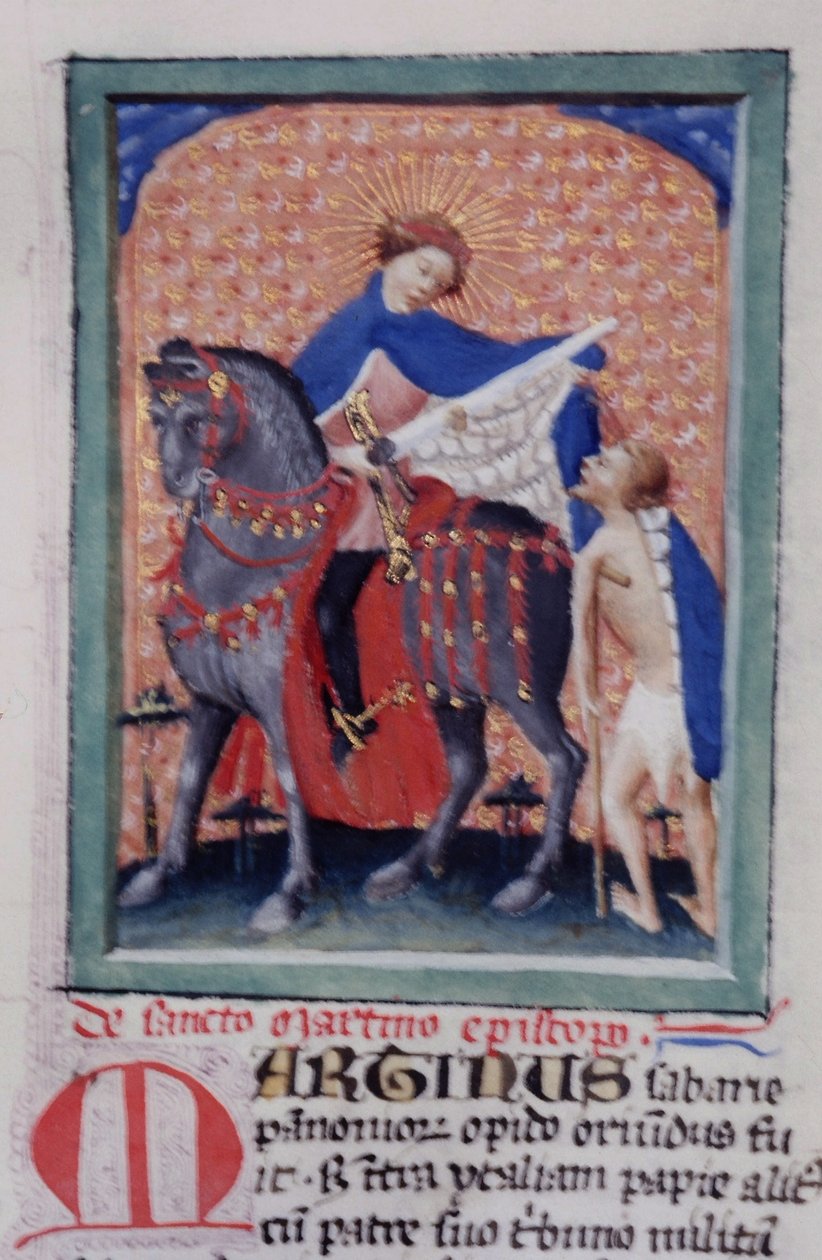 de sancto martino epistopo.
MARTINUS sabarie
pānonioꝝ opido oriūdus fu
it. sꝫ ītra ytaliam papie alit᷒
cū patre suo t'buno militū